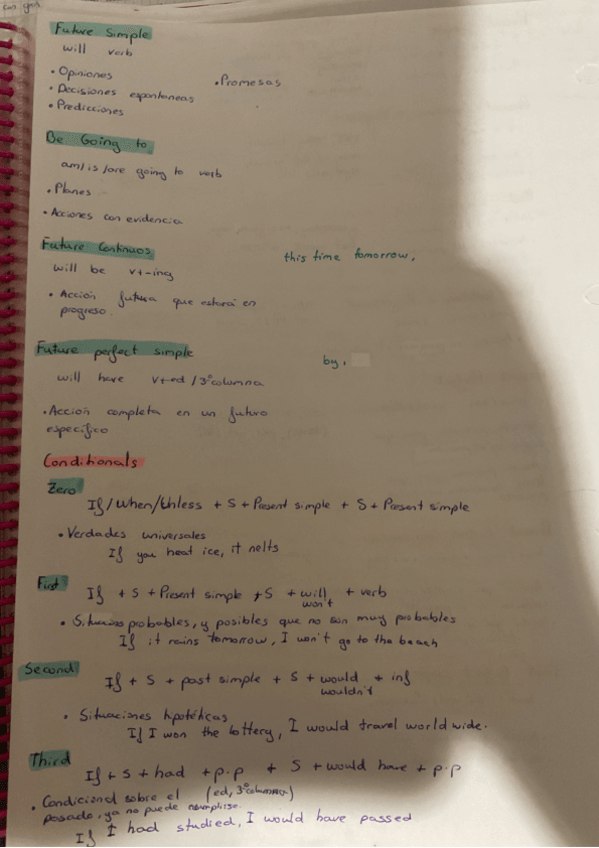 Future Simple
will verb
• Opiniones
• Promesas
• Decisiones espontaneas
• Predicciones
Be Going to
am/is/are going to verb
• Planes
• Acciones con evidencia
Future Continuos
this time tomorrow,
will be v+-ing
• Acción futura que estará en
progreso.
Future perfect simple
by,
will have v+ed / 3ºcolumna
• Acción completa en un futuro
específico
Conditionals
Zero
If/When/Unless + S + Present simple + S + Present simple
• Verdades universales
If you heat ice, it melts
First
If + S + Present simple + S + will + verb
won't
• Situaciones probables, y posibles que no son muy probables
If it rains tomorrow, I won't go to the beach
Second
If + S + past simple + S + would + inf
wouldn't
• Situaciones hipotéticas
If I won the lottery, I would travel world wide.
Third
If + S + had + p.p + S + would have + p.p
(ed, 3ºcolumna)
• Condicional sobre el
pasado, ya no puede
If I had studied, I would have passed